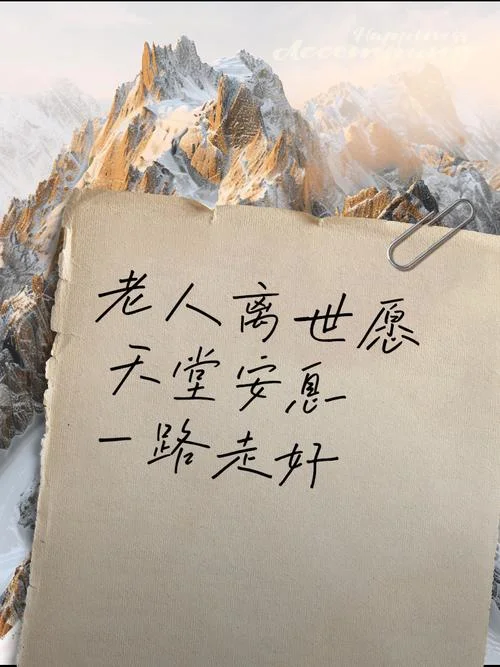 Happiness
老人离世愿
天堂安息
一路走好